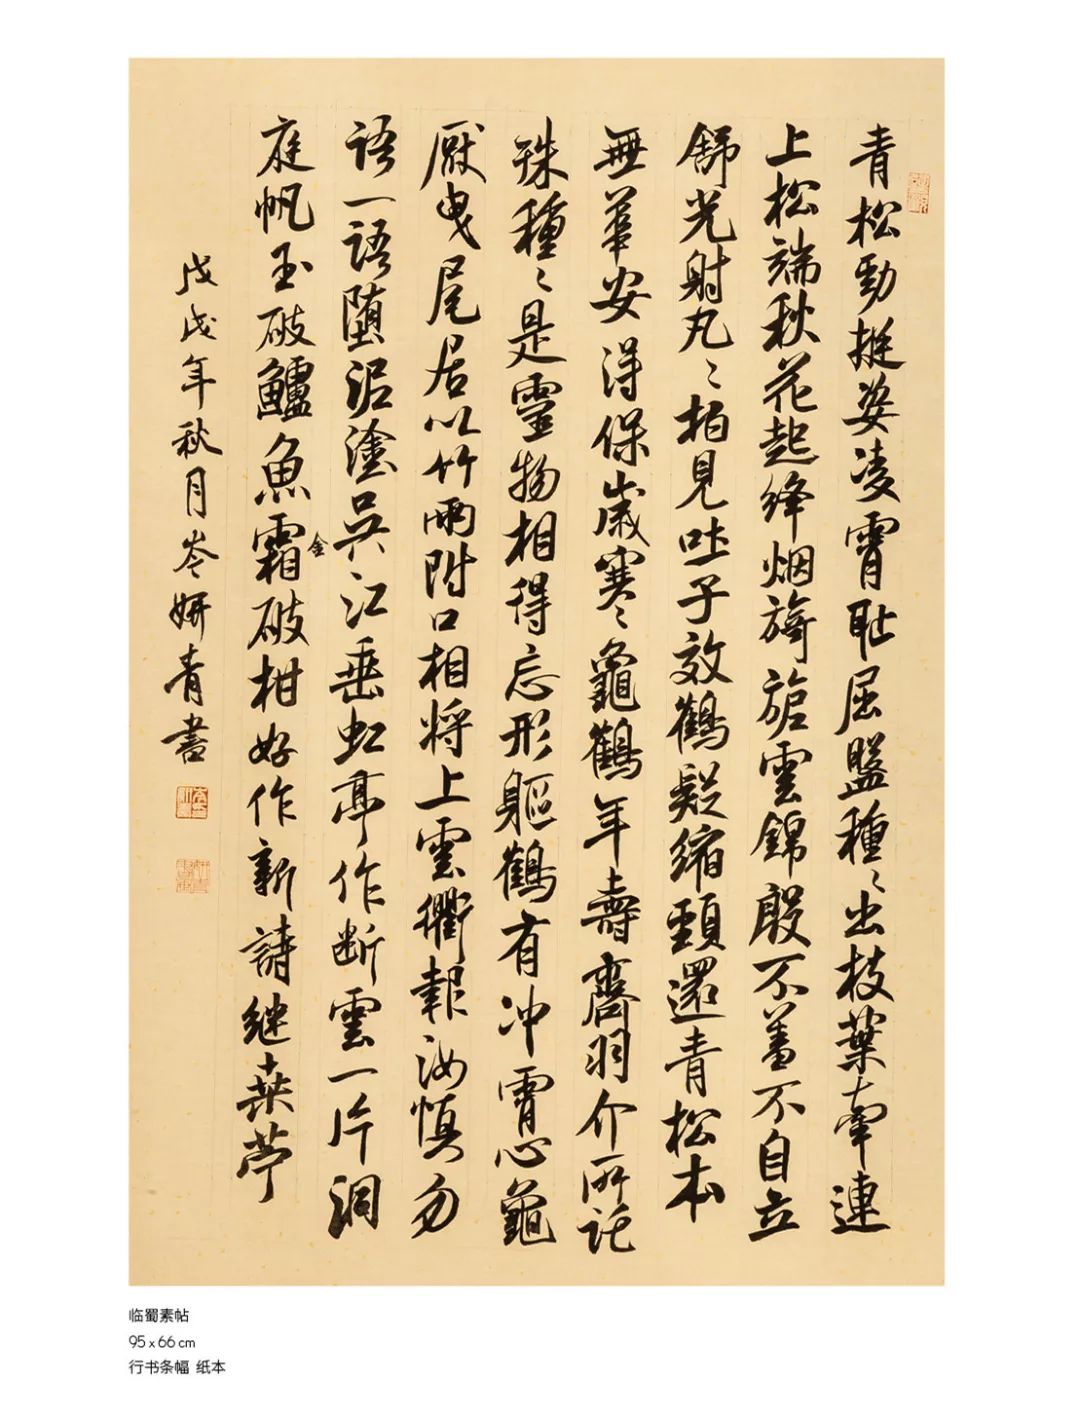 青松勁挺姿凌霄耻屈盤種々出枝葉牽連
上松端秋花起絳烟旖旎雲錦殷不羞不自立
舒光射丸々柏見吐子效鶴疑縮頸還青松本
無華安得保歲寒々龜鶴年壽齊羽介所託
殊種々是靈物相得忘形軀鶴有冲霄心龜
厭曳尾居以竹兩附口相將上雲衢報汝慎勿
語一語堕泥塗吳江垂虹亭作断雲一片洞
庭帆玉破鱸魚霜破柑好作新詩継桑苧
金
戊戌年秋月岑妍青書
临蜀素帖
95 x 66 cm
行书条幅 纸本